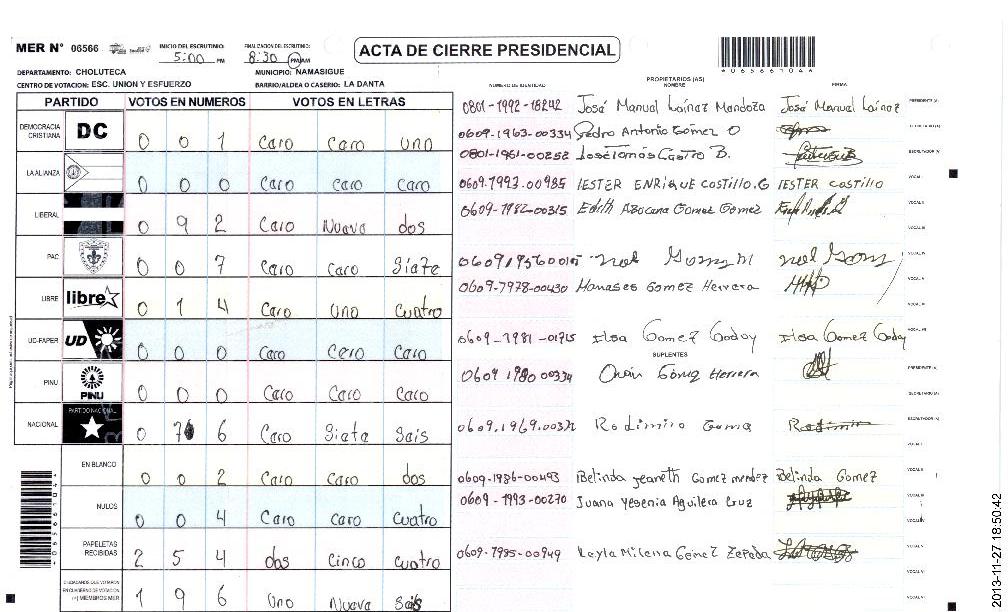 MER N° 06566
INICIO DEL ESCRUTINIO: 5:00 PM
FINALIZACION DEL ESCRUTINIO: 8:30 PM/AM
ACTA DE CIERRE PRESIDENCIAL
DEPARTAMENTO: CHOLUTECA MUNICIPIO: NAMASIGUE
CENTRO DE VOTACION: ESC. UNION Y ESFUERZO BARRIO/ALDEA O CASERIO: LA DANTA
PARTIDO VOTOS EN NUMEROS VOTOS EN LETRAS
DEMOCRACIA CRISTIANA DC 0 0 1 Caro Caro uno
LA ALIANZA 0 0 0 Caro Caro Caro
LIBERAL 0 9 2 Caro Nueva dos
PAC 0 0 7 Caro Caro Siate
LIBRE libre 0 1 4 Caro Uno Cuatro
UD-FAPER UD 0 0 0 Caro Cero Caro
PINU PINU 0 0 0 Caro Caro Caro
NACIONAL PARTIDO NACIONAL 0 7 6 Caro Siata Sais
EN BLANCO 0 0 2 Caro Caro dos
NULOS 0 0 4 Caro Caro Cuatro
PAPELETAS RECIBIDAS 2 5 4 dos Cinco Cuatro
CIUDADANOS QUE VOTARON EN CUADERNO DE VOTACION (+) MIEMBROS MER 1 9 6 Uno Nueva Sais
PROPIETARIOS (AS)
NUMERO DE IDENTIDAD NOMBRE FIRMA
0801-1992-18242 José Manuel Laínez Mendoza José Manuel Laínez PRESIDENTE (A)
0609-1963-00334 Pedro Antonio Gómez O
0801-1961-00252 José Tomás Castro B.
0609-1993-00985 IESTER ENRIQUE COSTILLO.G IESTER COSTILLO
0609-1982-00315 Edith Azucena Gomez Gomez
0609-1978-00430 Manases Gomez Herrera
0609-1981-01715 Ilsa Gomez Godoy Ilsa Gomez Godoy
SUPLENTES
0609 1980 00334 Gómez Herrera PRESIDENTE (A)
Rodimiro
0609-1986-00493 Belinda Jeaneth Gomez mendez Belinda Gomez
0609-1993-00270 Juana Yesenia Aguilera Cruz
0609-1985-00949 Keyla Milena Gomez Zepeda
2013-11-27 18:50:42